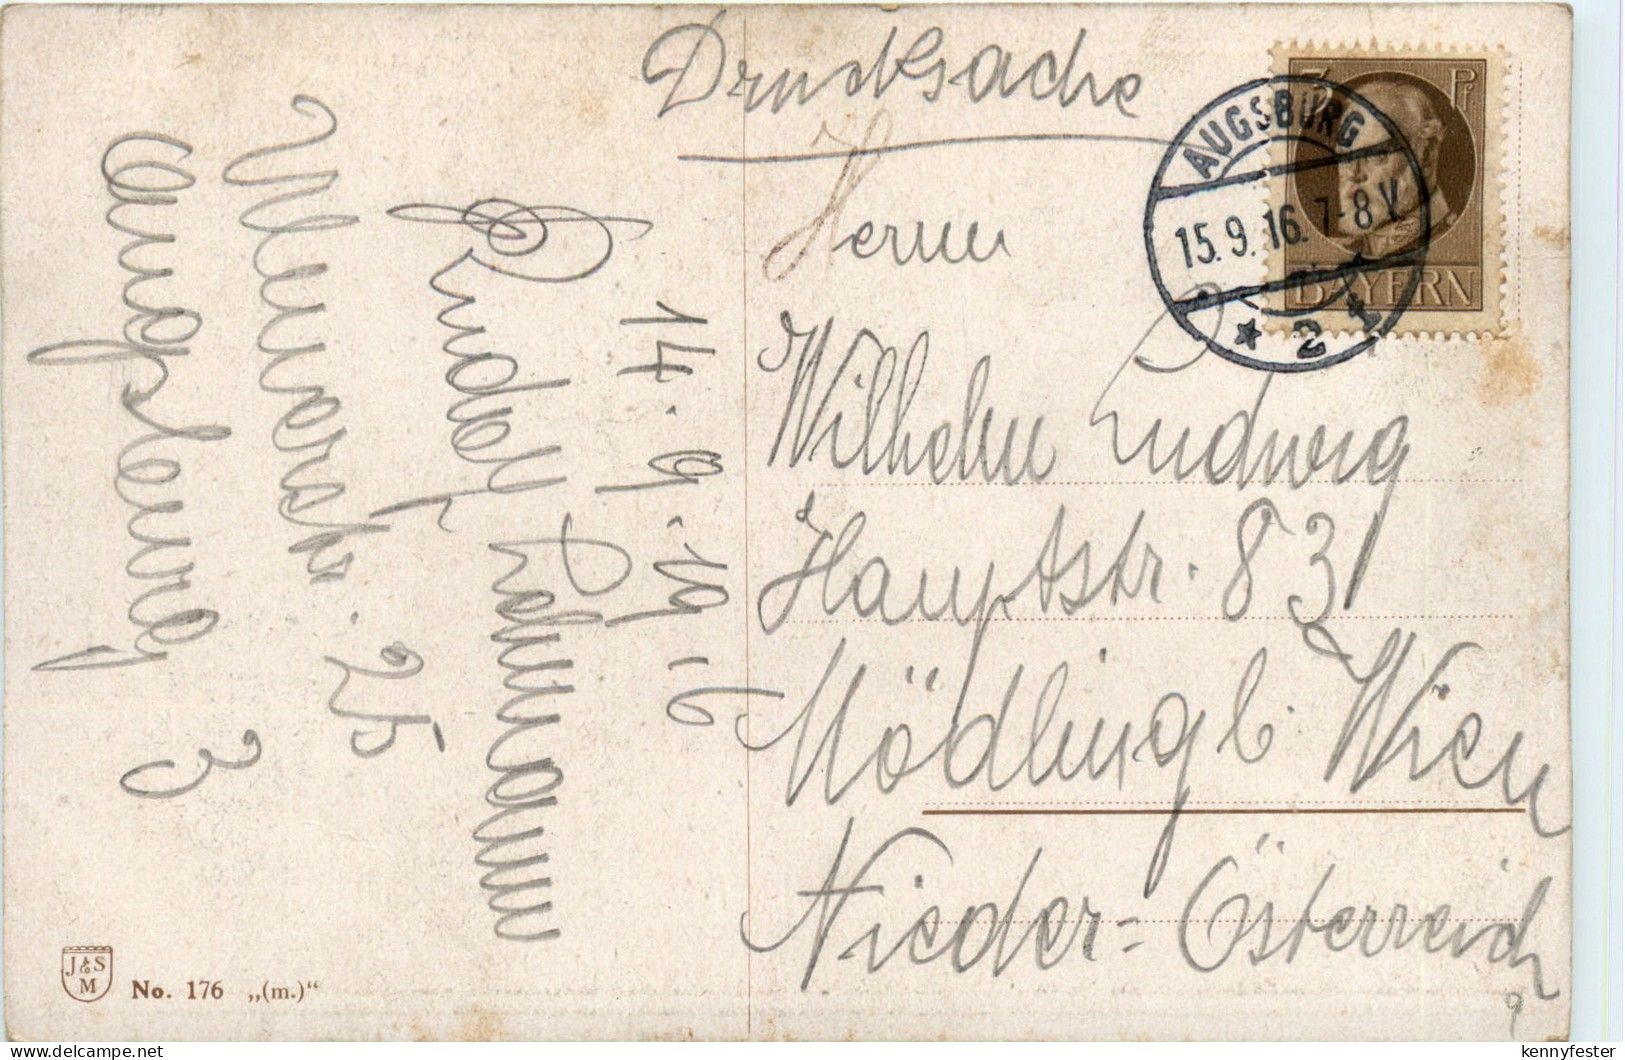 Drucksache
Herrn
Wilhelm Ludwig
Hauptstr. 83
Mödling b. Wien
Nieder=Österreich
14.9.19.16
Rudolf Lehmann
Ulmerstr. 25
Augsburg 3
AUGSBURG
15.9.16. 7-8 V.
* 2
3 Pf
BAYERN
J & S
M
No. 176 „(m.)“
delcampe.net
kennyfester